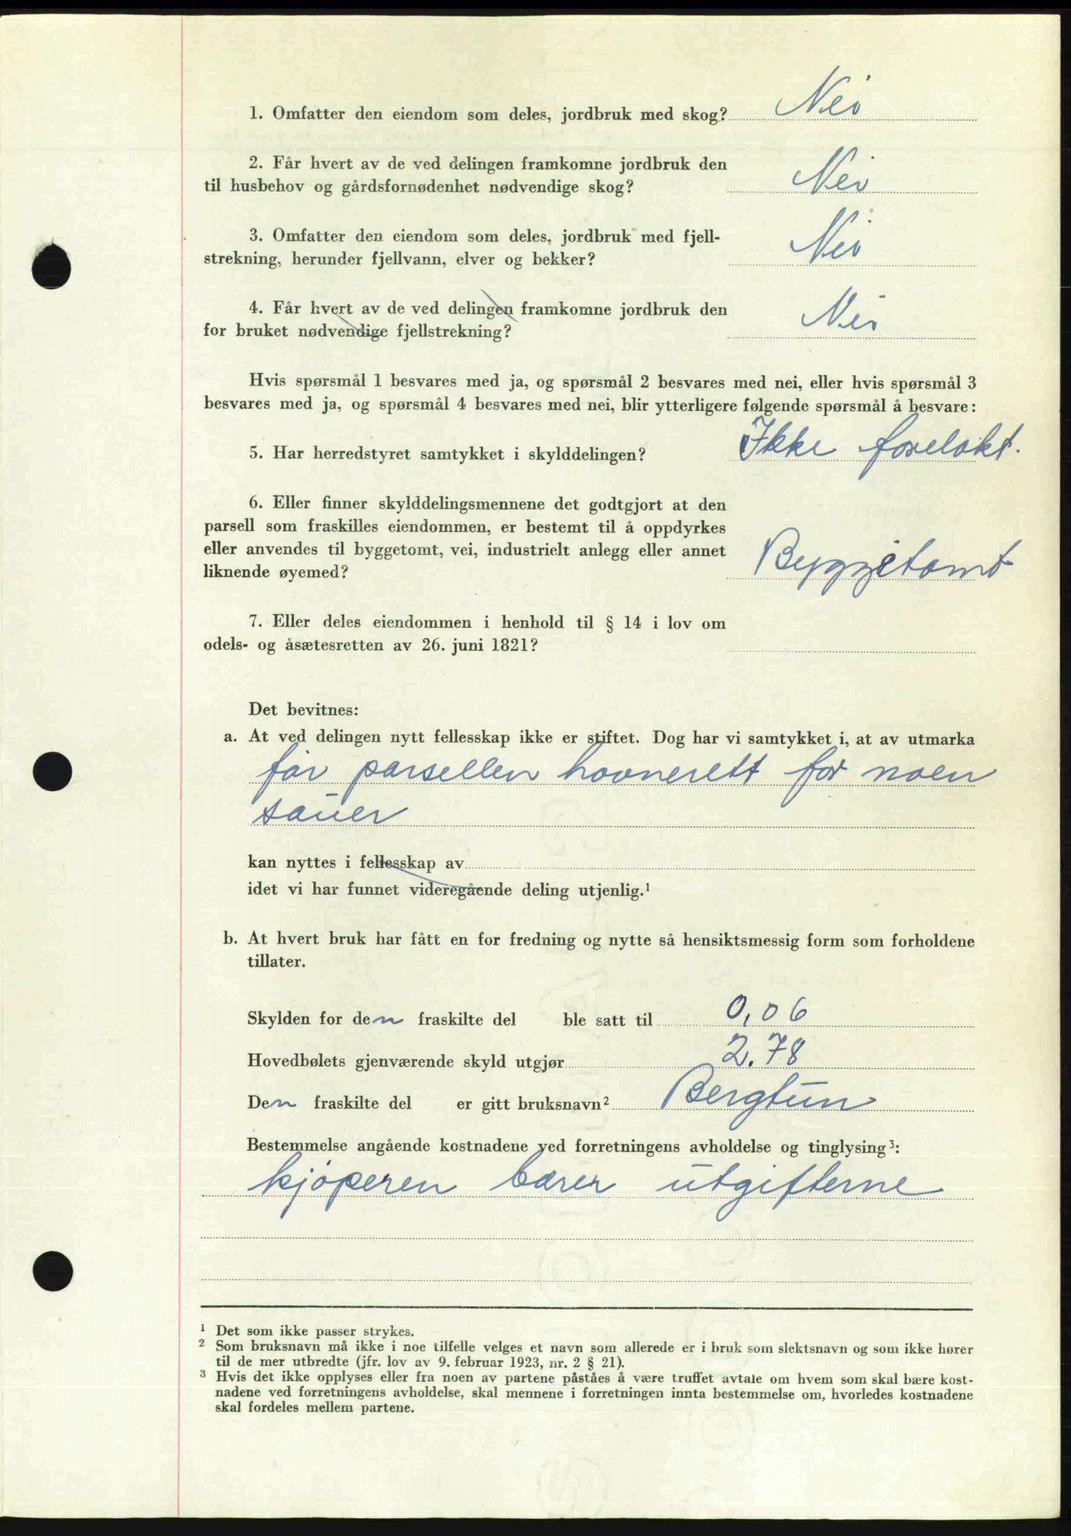 1. Omfatter den eiendom som deles, jordbruk med skog? Nei
2. Får hvert av de ved delingen framkomne jordbruk den
til husbehov og gårdsfornødenhet nødvendige skog? Nei
3. Omfatter den eiendom som deles, jordbruk med fjell-
strekning, herunder fjellvann, elver og bekker? Nei
4. Får hvert av de ved delingen framkomne jordbruk den
for bruket nødvendige fjellstrekning? Nei
Hvis spørsmål 1 besvares med ja, og spørsmål 2 besvares med nei, eller hvis spørsmål 3
besvares med ja, og spørsmål 4 besvares med nei, blir ytterligere følgende spørsmål å besvare:
5. Har herredstyret samtykket i skylddelingen? Ikke forelakt.
6. Eller finner skylddelingsmennene det godtgjort at den
parsell som fraskilles eiendommen, er bestemt til å oppdyrkes
eller anvendes til byggetomt, vei, industrielt anlegg eller annet
liknende øyemed? Byggetomt
7. Eller deles eiendommen i henhold til § 14 i lov om
odels- og åsætesretten av 26. juni 1821?
Det bevitnes:
a. At ved delingen nytt fellesskap ikke er stiftet. Dog har vi samtykket i, at av utmarka
får parsellen havnerett for noen
sauer
kan nyttes i fellesskap av
idet vi har funnet videregående deling utjenlig.¹
b. At hvert bruk har fått en for fredning og nytte så hensiktsmessig form som forholdene
tillater.
Skylden for den fraskilte del ble satt til 0,06
Hovedbølets gjenværende skyld utgjør 2.78
Den fraskilte del er gitt bruksnavn² Bergtun
Bestemmelse angående kostnadene ved forretningens avholdelse og tinglysing³:
kjøperen bærer utgifterne
¹ Det som ikke passer strykes.
² Som bruksnavn må ikke i noe tilfelle velges et navn som allerede er i bruk som slektsnavn og som ikke hører
til de mer utbredte (jfr. lov av 9. februar 1923, nr. 2 § 21).
³ Hvis det ikke opplyses eller fra noen av partene påstås å være truffet avtale om hvem som skal bære kost-
nadene ved forretningens avholdelse, skal mennene i forretningen innta bestemmelse om, hvorledes kostnadene
skal fordeles mellem partene.